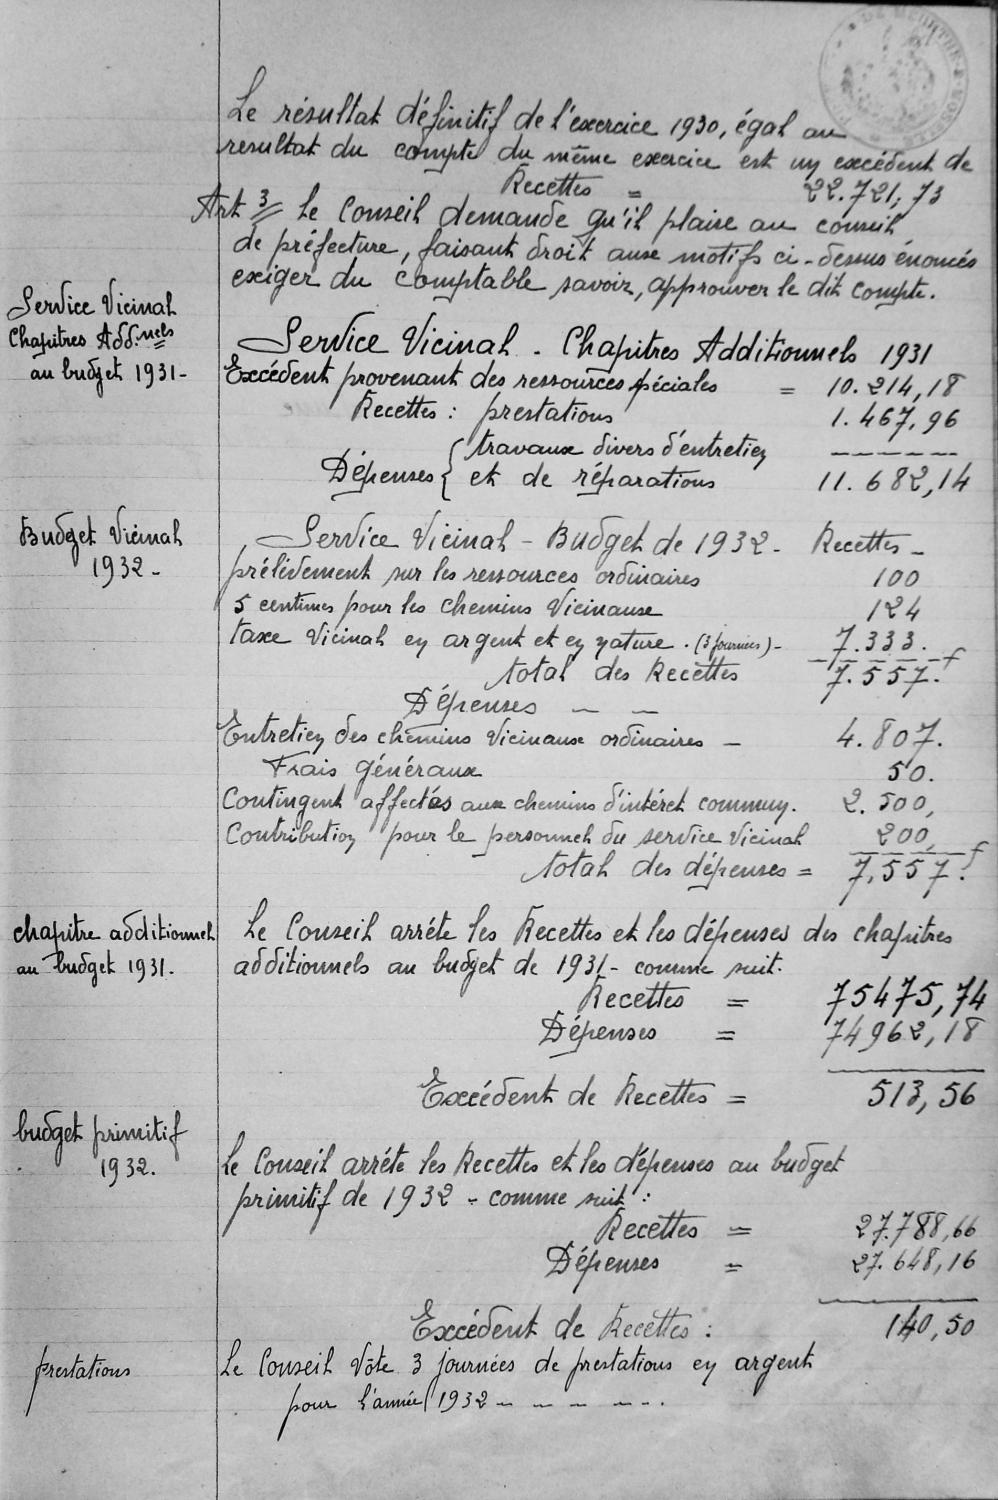 Le résultat définitif de l'exercice 1930, égal au
resultat du compte du même exercice est un excédent de
Recettes = 22.721,73
Art 3 Le Conseil demande qu'il plaise au conseil
de préfecture, faisant droit aux motifs ci-dessus énoncés
exiger du comptable savoir, approuver le dit compte.
Service Vicinal
Chapitres Add.nels
au budget 1931-
Service Vicinal - Chapitres Additionnels 1931
Excédent provenant des ressources spéciales = 10.214,18
Recettes : prestations 1.467,96
Dépenses { travaux divers d'entretien
et de réparations 11.682,14
Budget Vicinal
1932-
Service Vicinal - Budget de 1932- Recettes-
prélèvement sur les ressources ordinaires 100
5 centimes pour les chemins Vicinaux 124
taxe Vicinal en argent et en nature. (3 journées)- 7.333.
total des Recettes 7.557.f
Dépenses - -
Entretien des chemins Vicinaux ordinaires - 4.807.
Frais généraux 50.
Contingent affectés aux chemins d'intéret commun. 2.500,
Contribution pour le personnel du service Vicinal 200,
total des dépenses = 7.557.f
chapitre additionnel
au budget 1931.
Le Conseil arrête les Recettes et les dépenses des chapitres
additionnels au budget de 1931- comme suit.
Recettes = 75475,74
Dépenses = 74962,18
Excédent de Recettes = 513,56
budget primitif
1932.
Le Conseil arrête les Recettes et les dépenses au budget
primitif de 1932 - comme suit :
Recettes = 27.788,66
Dépenses = 27.648,16
Excédent de Recettes : 140,50
prestations
Le Conseil Vote 3 journées de prestations en argent
pour l'année 1932 - - - - -.